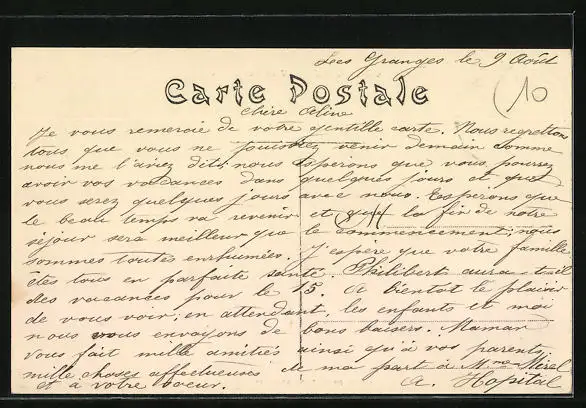 Les Granges le 9 Août
Carte Postale
10
Chère Celine
Je vous remercie de votre gentille carte. Nous regrettons
tous que vous ne puissiez venir demain comme
nous me l'aviez dit, nous esperons que vous pourrez
avoir vos vacances dans quelques jours et que
vous serez quelques jours avec nous. Esperons que
le beau temps va revenir et que la fin de notre
séjour sera meilleur que le commencement; nous
sommes toutes enrhumées. J'espère que votre famille
êtes tous en parfaite santé. Philibert aura-t-il
des vacances pour le 15. A bientot le plaisir
de vous voir; en attendant, les enfants et moi
nous vous envoyons de bons baisers. Maman
vous fait mille amitiés ainsi qu'à vos parents
mille choses affectueuses de ma part à Mme
et à votre soeur. A. Hopital